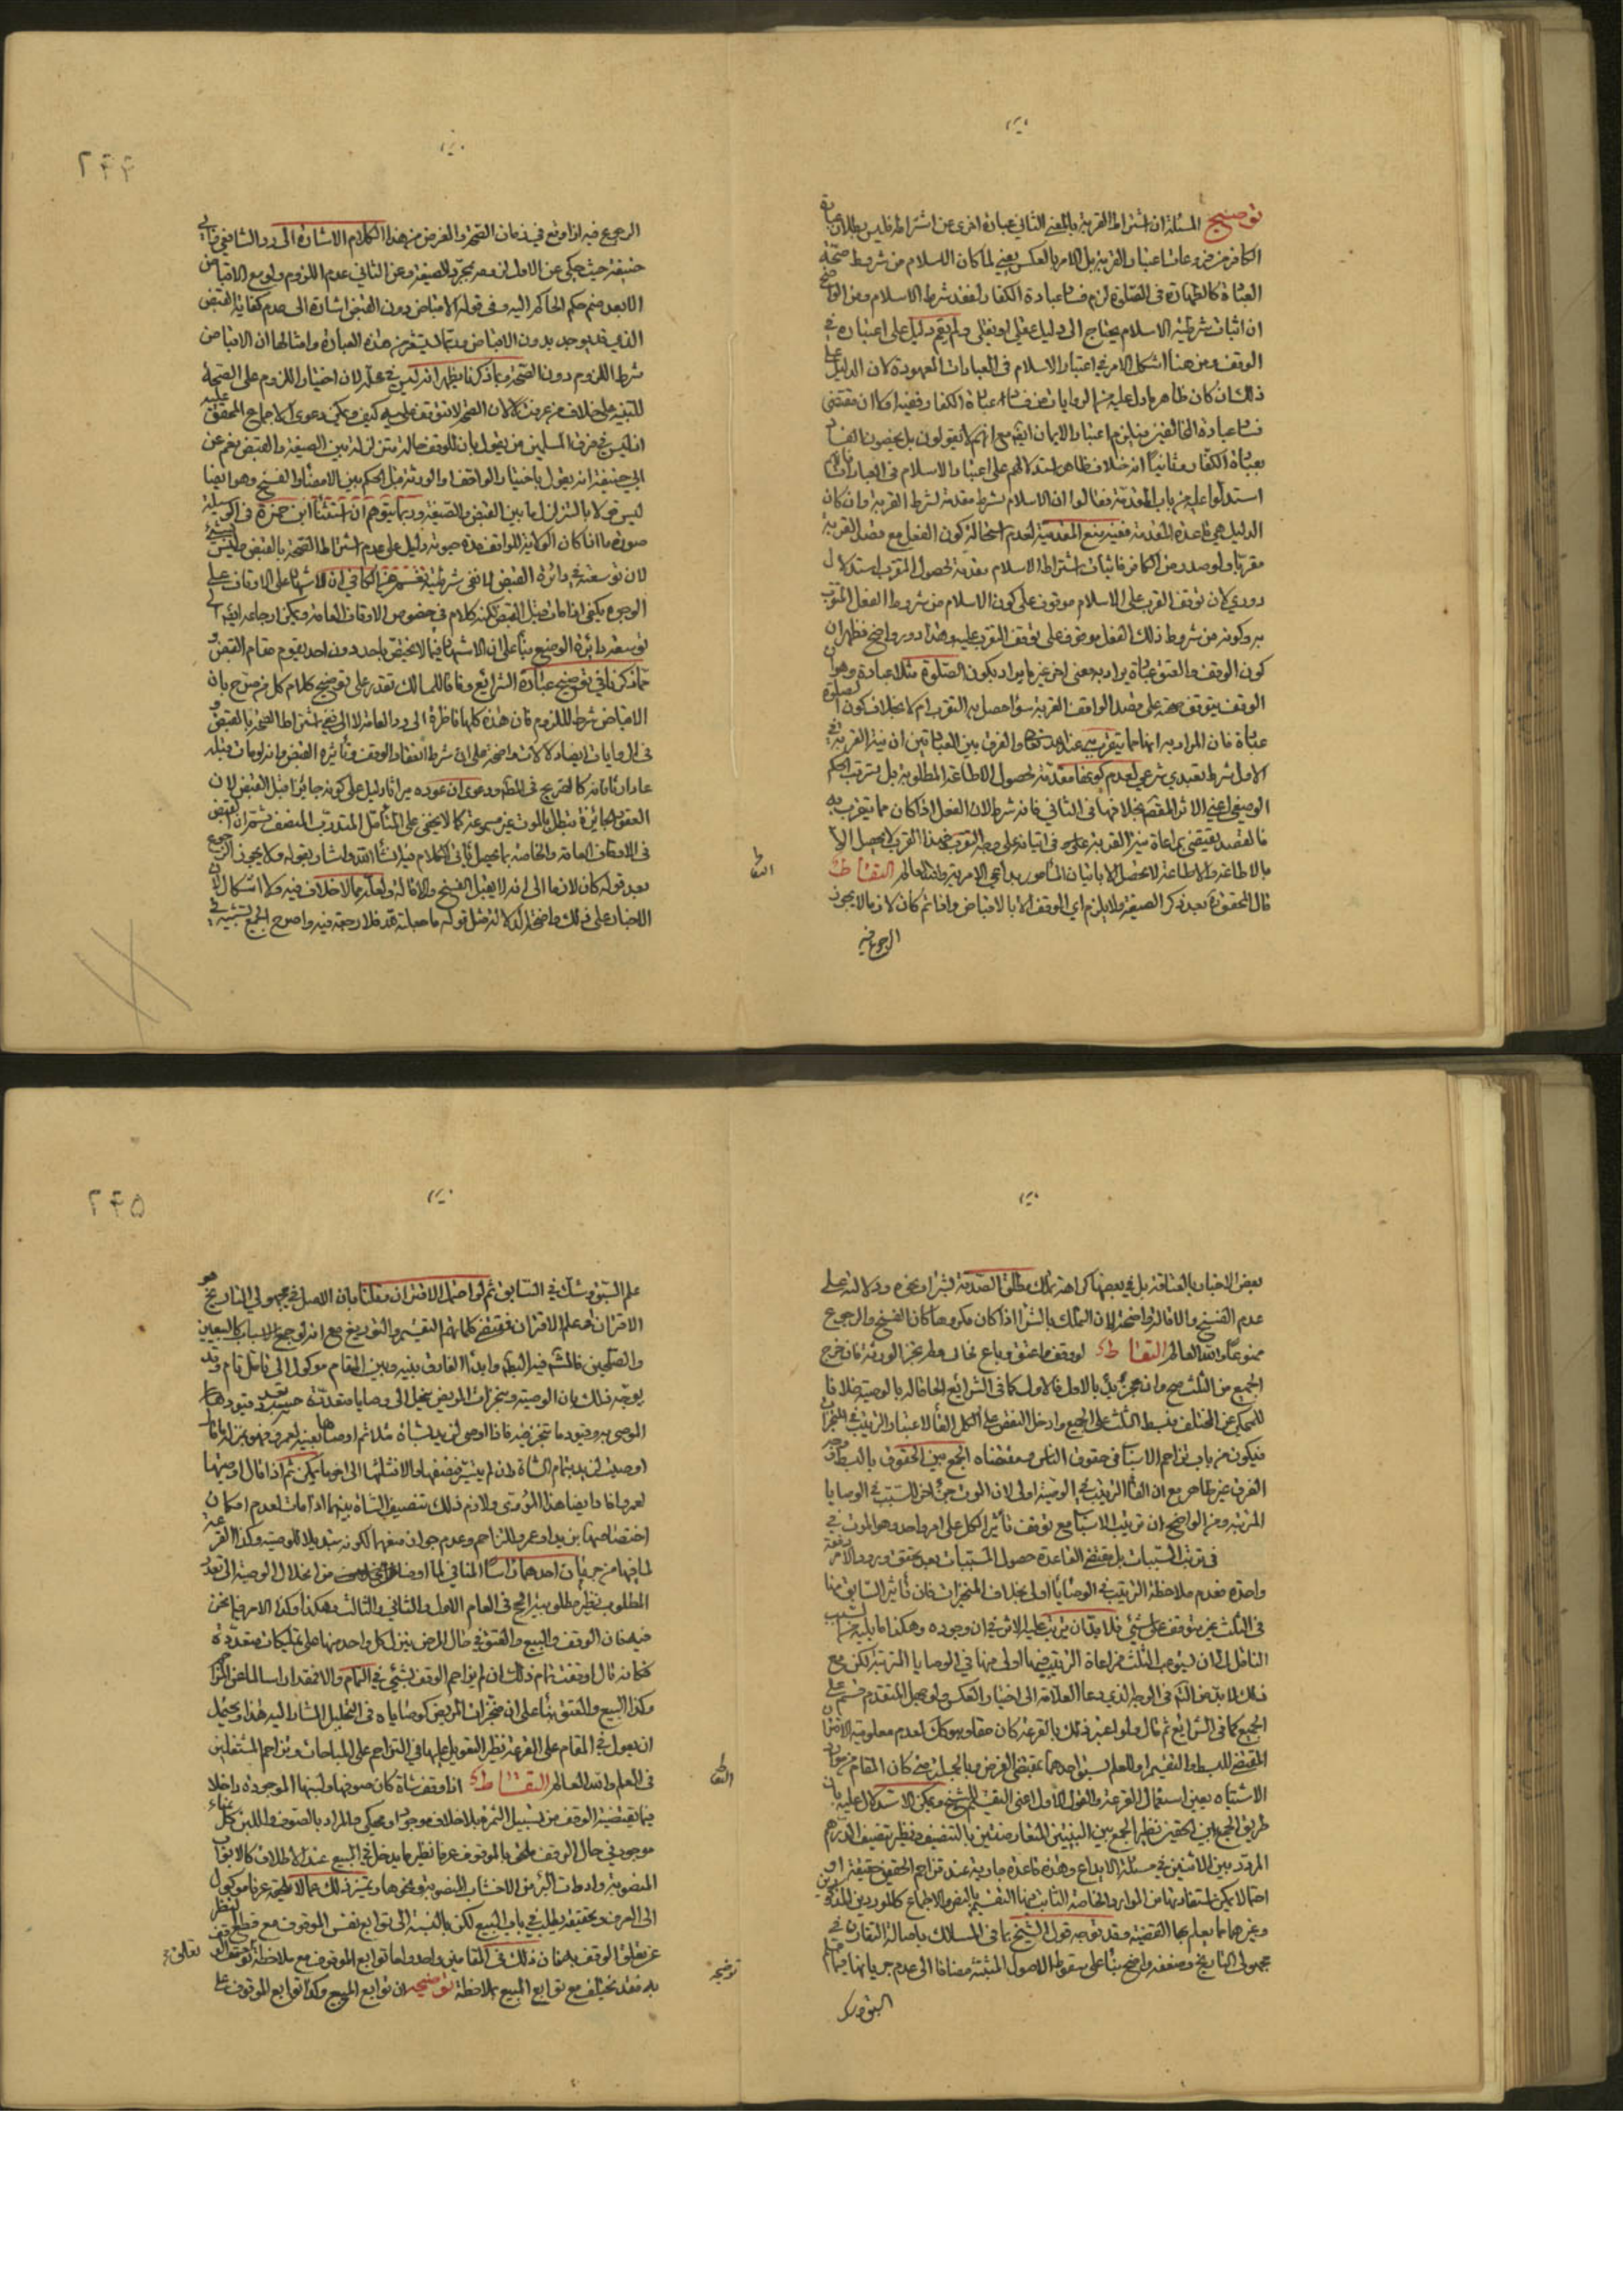 توضيح المسئلة ان اشتراط القربة بالمعنى الثاني عبارة اخرى عن اشتراط فليس بطلان عبادة
الكافر من فروعات اعتبار القربة بل الامر بالعكس يعني لما كان الاسلام من شروط صحة
العبادة كالطهارة في الصلوة لزم فساد عبادة الكفار لفقد شرط الاسلام ومن الواضح
ان اثبات شرطية الاسلام يحتاج الى دليل عقلي او نقلي ولم يقم دليل على اعتباره في
الوقف ومن هنا اشكل الامر في اعتبار الاسلام في العبادات المعهودة لان الدليل على
ذلك ان كان ظاهر ما دل عليه من الروايات من فساد عبادة الكفار ففيه اولا ان مقتضى
فساد عبادة المخالفين فيلزم اعتبار الايمان ايضا مع انهم لا يقولون بل يخصون الفساد
بعبادة الكفار وثانيا انه خلاف ظاهر استدلالهم على اعتبار الاسلام في العبادات فانهم
استدلوا عليه من باب المقدمة فقالوا ان الاسلام شرط مقدمة لشرط القربة وان كان
الدليل هي قاعدة المقدمة ففيه منع المقدمية لعدم استحالة كون الفعل مع قصد القربة
مقربا ولو صدر من الكافر فاثبات اشتراط الاسلام مقدمة لحصول التقرب استدلال
دوري لان توقف القرب على الاسلام موقوف على كون الاسلام من شروط الفعل المتقرب
به وكونه من شروط ذلك الفعل موقوف على توقف التقرب عليه وهذا دور واضح فظهر ان
كون الوقف والعتق عبادة يراد به معنى اخر غير ما يراد بكون الصلوة مثلا عبادة وهو ان
الوقف يتوقف صحته على قصد الواقف القربة سواء حصل به التقرب ام لا بخلاف كون الصلوة
عبادة فان المراد به انها مما يتقرب به عند الله والفرق بين العبادتين ان نية القربة في
الاول شرط تعبدي شرعي لعدم كونها مقدمة لحصول الاطاعة المطلوبة بل لترتب الحكم
الوضعي اعني الاثر المقصود بخلافها في الثاني فانه شرط لان الفعل اذا كان مما يتقرب به
فالقصد يقتضي مراعاة نية القربة في اتيانه على وجه التقرب وهذا القرب لا يحصل الا
بالاطاعة والاطاعة لا تحصل الا باتيان المأمور بداعي الامر به والله العالم التقاط
قال المحقق بعد ذكر الصيغة ولا يلزم اي الوقف الا بالاقباض واذا تم كان لازما لا يجوز
الرجوع فيه
التقاط
٢٤٤
الرجوع فيه اذا وقع في زمان الصحة والغرض من هذا الكلام الاشارة الى رد الشافعي وابي
حنيفة حيث حكى عن الاول لزومه بمجرد الصيغة وعن الثاني عدم اللزوم ولو مع الاقباض
الا بعد ضم حكم الحاكم اليه وفي قوله الاقباض دون القبض اشارة الى عدم كفاية القبض
الذي قد يوجد بدون الاقباض وربما يستغرب هذه العبارة وامثالها ان الاقباض
شرط اللزوم دون الصحة وبما ذكرنا يظهر انه ليس في محله لان اختيار اللزوم على الصحة
للتنبيه على خلاف من عرفت لا لان الصحة لا تتوقف عليه كيف وحكي دعوى الاجماع المحقق عليه
اذ ليس في فرق المسلمين من يقول بان للوقف حالة متزلزلة بين الصيغة والقبض نعم عن
ابي حنيفة انه يقول باختيار الواقف او الورثة قبل الحكم بين الامضاء والفسخ وهو ايضا
ليس قولا بالتزلزل ما بين القبض والصيغة وربما يتوهم ان استثناء ابن حمزة في الوسيلة
صورة ما اذا كان الولاية للواقف مدة حيوته دليل على عدم اشتراط الصحة بالقبض وليس بشيء
لان توسعة في دائرة القبض لا نفي شرطيته
الوجوه يكفي اذا مات قبل القبض لكنه كلام في خصوص الاوقاف العامة ويمكن ارجاعه ايضا الى
توسعة دائرة الوضع بناء على ان الاشهاد فيما لا يختص باحد دون احد يقوم مقام القبض و
مما ذكرنا في توضيح عبارة الشرائع وفاقا للمسالك تقدر على توضيح كلام كل من صرح بان
الاقباض شرط للزوم فان هذه كلها ناظرة الى رد العامة لا الى نفي اشتراط الصحة بالقبض و
في الروايات ايضا دلالات واضحة على ان شرط انعقاد الوقف وتأثيره القبض وانه لو مات قبله
عاد ارثا فانه كالصريح في البطلان ودعوى ان عوده ميراثا دليل على كونه جائزا قبل القبض لان
العقود الجائزة تبطل بالموت غير مسموعة كما لا يخفى على المتأمل المتدرب المنصف ثم ان القبض
في الاوقاف العامة والخاصة بما يحصل يأتي الكلام فيه انشاء الله واشار بقوله ولا يجوز الرجوع
بعد قوله كان لازما الى انه لا يقبل الفسخ والاقالة ولعله مما لا خلاف فيه ولا اشكال لان
الاخبار على ذلك واضحة الدلالة مثل قوله ما جعلته لله فلا رجعة فيه واصرح الجميع تشبيه في
بعض الاخبار بالعتاقة بل في بعضها كراهة تملك مطلق الصدقة بشراء ونحوه ودلالته على
عدم الفسخ والاقالة واضحة لان التملك بالشراء اذا كان مكروها كان الفسخ والرجوع
ممنوعا والله العالم التقاط لو وقف وعتق وباع فحاب ولم يجز الورثة فان خرج
الجميع من الثلث صح وان عجز بدء بالاول فالاول كما في الشرائع الحاقا له بالوصية خلافا
للمحكي عن المختلف فبسط الثلث على الجميع وادخل النقص على الكل الغاء لاعتبار الترتيب في المنجزات
فيكون من باب تزاحم الاسباب في حقوق الناس ومقتضاه الجمع بين الحقوق بالبسط ووجه
الفرق غير ظاهر مع ان الغاء الترتيب في الوصية اولى لان الموت جزء اخر للسبب في الوصايا
المرتبة ومن الواضح ان ترتيب الاسباب مع توقف تأثير الكل على امر واحد وهو الموت
في ترتب المسببات بل مقتضى القاعدة حصول المسببات بعد تحقق وبروز الامر دفعة
واحدة فعدم ملاحظة الترتيب في الوصايا اولى بخلاف المنجزات فان تأثير السابق منها
في الثلث غير متوقف على شيء فلا بد ان يترتب عليه الاثر في ان وجوده وهكذا ما يليه من السبب
الناقل الى ان يستوعب الثلث فمراعاة الترتيب فيها اولى منها في الوصايا المرتبة لكن مع
ذلك لا بد من التأمل في الوجه الذي دعا العلامة الى اختيار العكس ولو جهل المتقدم قسم على
الجميع كما في الشرائع ثم قال ولو اعتبر ذلك بالقرعة كان حقا وهو كذلك لعدم معلومية الاقتران
المقتضي للبسط والتقسيم او للعلم بسبق احدهما بمقتضى الفرض وبالجملة متى كان المقام من موارد
الاشتباه تعين استعمال القرعة والقول الاول اعني التقسيم للشيخ ويمكن الاستدلال عليه بان
طريق الجمع بين الحقين نظير الجمع بين البينتين المتعارضتين بالتنصيف ونظير تنصيف الدرهم
المردد بين الاثنين في مسئلة الايداع وهذه قاعدة جارية عند تزاحم الحقين حقيقة او
احتمالا يمكن استفادتها من الموارد الخاصة الثابت فيها التقسيم بالنص والاجماع كالموردين المذكورين
وغيرهما مما يعلم بها القضية وقد توجه قول الشيخ بما في المسالك باصالة التقارن في
مجهولي التاريخ وضعفه واضح بناء على سقوط الاصول المثبتة مضافا الى عدم جريانها فيما
السبق وشك
٢٤٥
علم السبق وشك في السابق ثم لو احتمل الاقتران وقلنا بان الاصل في مجهولي التاريخ هو
الاقتران او علم الاقتران فمقتضى كلماتهم التقسيم والتوزيع مع انه لو جمع الاسباب كالبيعين
والصلحين فالمشهور فيه البطلان وابداء الفارق بينه وبين المقام موكول الى تأمل تام وقد
يوجه ذلك بان الوصية ومنجزات المريض ينحل الى وصايا متعددة حسب تعدد قيودها
الموصى به وقيود ما تنجز فيه فاذا اوصى لزيد بشاة مثلا ثم اوصاها بعينها لعمرو فهو بمنزلة ما قال
اوصيت لزيد بتمام الشاة وان لم يتيسر فنصفها والا فثلثها الى اخر ما يمكن ثم اذا قال اوصيتها
لعمرو افاد ايضا هذا المؤدى ولازم ذلك تنصيف الشاة بينهما اذا مات لعدم امكان
اختصاصها بزيد او عمرو للتزاحم وعدم جواز منعهما لكونه تبديلا للوصية وكذا القرعة
لما فيها من حرمان احدهما رأسا المنافي لما اوضحنا من انحلال الوصية الى تعدد
المطلوب نظير مطلوبية الحج في العام الاول والثاني والثالث وهكذا وكذا الامر فيما نحن
فيه فان الوقف والبيع والعتق في حال المرض ينزل كل واحد منها على تمليكات متعددة
فكانه قال اوقفت تمام ذلك ان لم يزاحم الوقف بشيء في التمام والا فمقدارا سالما عن المزاحم
وكذا البيع والعتق بناء على ان منجزات المريض كوصاياه في التحليل المشار اليه هذا ويحتمل
ان يعول في المقام على القرعة نظير التعويل عليها في التزاحم على المباحات وتزاحم المشتغلين
في العلم والله العالم التقاط اذا وقف شاة كان صوفها ولبنها الموجودة داخلا
فيما يقتضيه الوقف من تسبيل الثمرة بلا خلاف موجود او محكي والمراد بالصوف واللبن كل نماء
موجود في حال الوقف ملحق بالموقوف عرفا نظير ما يدخل في المبيع عند الاطلاق كالابواب
المنصوبة وادوات البئر من الاخشاب المنصوبة ونحوها وتميز ذلك عما لا يلحقه عرفا موكول
الى العرف وتحقيقه يطلب في باب البيع لكن بالنسبة الى توابع نفس الموقوف مع قطع النظر
عن تعلق الوقف به فان ذلك في المقامين واحد واما توابع الموقوف مع ملاحظة تعلق الوقف
به فقد تختلف مع توابع المبيع بملاحظة توضيحه ان توابع المبيع وكذا توابع الموقوف على
التقاط
توضيحه